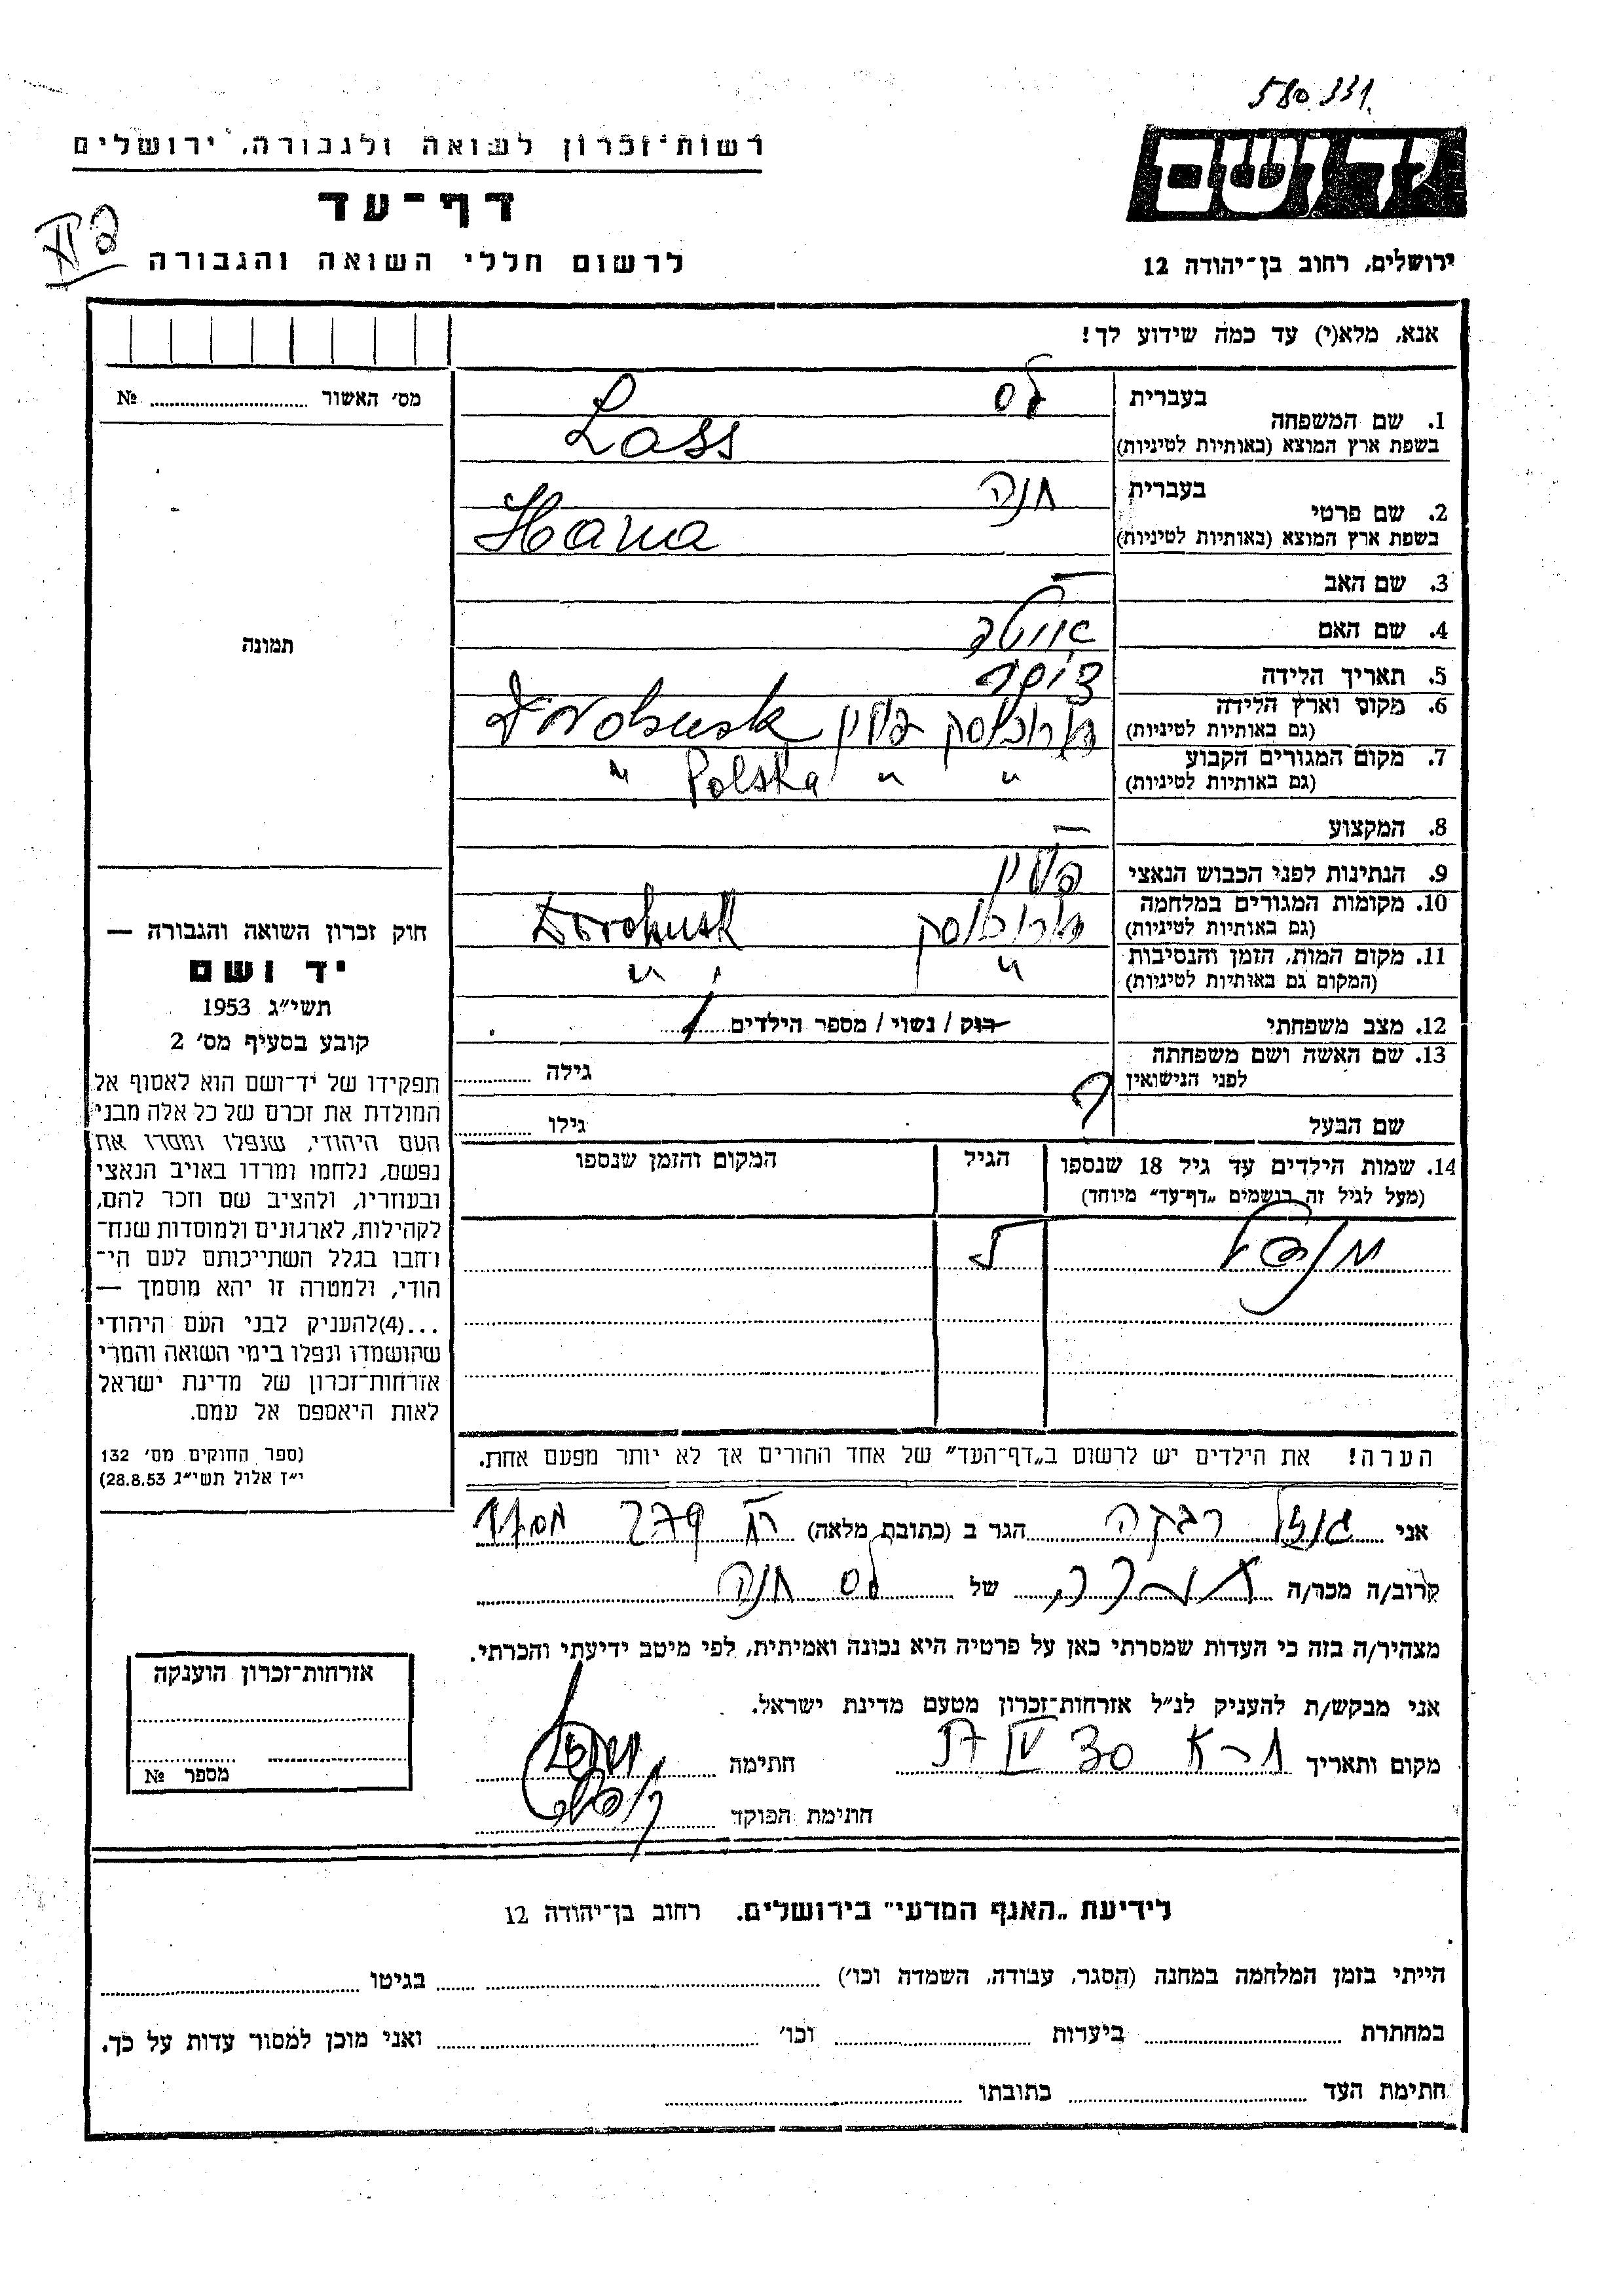 580.331
יד ושם
רשות־זכרון לשואה ולגבורה, ירושלים
דף־עד
לרשום חללי השואה והגבורה
ירושלים, רחוב בן־יהודה 12
אנא, מלא(י) עד כמה שידוע לך!
מס׳ האשור № 
תמונה
1. שם המשפחה
בעברית לס
בשפת ארץ המוצא (באותיות לטיניות) Lass
2. שם פרטי
בעברית חנה
בשפת ארץ המוצא (באותיות לטיניות) Hana
3. שם האב —
4. שם האם
5. תאריך הלידה
6. מקום וארץ הלידה
(גם באותיות לטיניות) דורוהוסק פולין Dorohusk
7. מקום המגורים הקבוע
(גם באותיות לטיניות) " " Polska "
8. המקצוע —
9. הנתינות לפני הכבוש הנאצי פולין
10. מקומות המגורים במלחמה
(גם באותיות לטיניות) דורוהוסק Dorohusk
11. מקום המות, הזמן והנסיבות
(המקום גם באותיות לטיניות) " "
12. מצב משפחתי רוק / נשוי / מספר הילדים 1
13. שם האשה ושם משפחתה
לפני הנישואין גילה
שם הבעל גילו
14. שמות הילדים עד גיל 18 שנספו
(מעל לגיל זה רושמים „דף־עד" מיוחד)
הגיל
המקום והזמן שנספו
הערה! את הילדים יש לרשום ב„דף־העד" של אחד ההורים אך לא יותר מפעם אחת.
חוק זכרון השואה והגבורה —
יד ושם
תשי״ג 1953
קובע בסעיף מס׳ 2
תפקידו של יד־ושם הוא לאסוף אל
המולדת את זכרם של כל אלה מבני
העם היהודי, שנפלו ומסרו את
נפשם, נלחמו ומרדו באויב הנאצי
ובעוזריו, ולהציב שם וזכר להם,
לקהילות, לארגונים ולמוסדות שנח־
רחבו בגלל השתייכותם לעם הי־
הודי, ולמטרה זו יהא מוסמך —
...(4)להעניק לבני העם היהודי
שהושמדו ונפלו בימי השואה והמרי
אזרחות־זכרון של מדינת ישראל
לאות היאספם אל עמם.
(ספר החוקים מס׳ 132
י״ז אלול תשי״ג 28.8.53)
אני רבקה הגר ב (כתובת מלאה) 279
קרוב/ה מכר/ה של לס חנה
מצהיר/ה בזה כי העדות שמסרתי כאן על פרטיה היא נכונה ואמיתית, לפי מיטב ידיעתי והכרתי.
אני מבקש/ת להעניק לנ״ל אזרחות־זכרון מטעם מדינת ישראל.
מקום ותאריך 30 IV חתימה
חתימת הפוקד
אזרחות־זכרון הוענקה
מספר №
לידיעת „האגף המדעי" בירושלים. רחוב בן־יהודה 12
הייתי בזמן המלחמה במחנה (הסגר, עבודה, השמדה וכו׳) בגיטו
במחתרת ביערות וכו׳ ואני מוכן למסור עדות על כך.
חתימת העד כתובתו